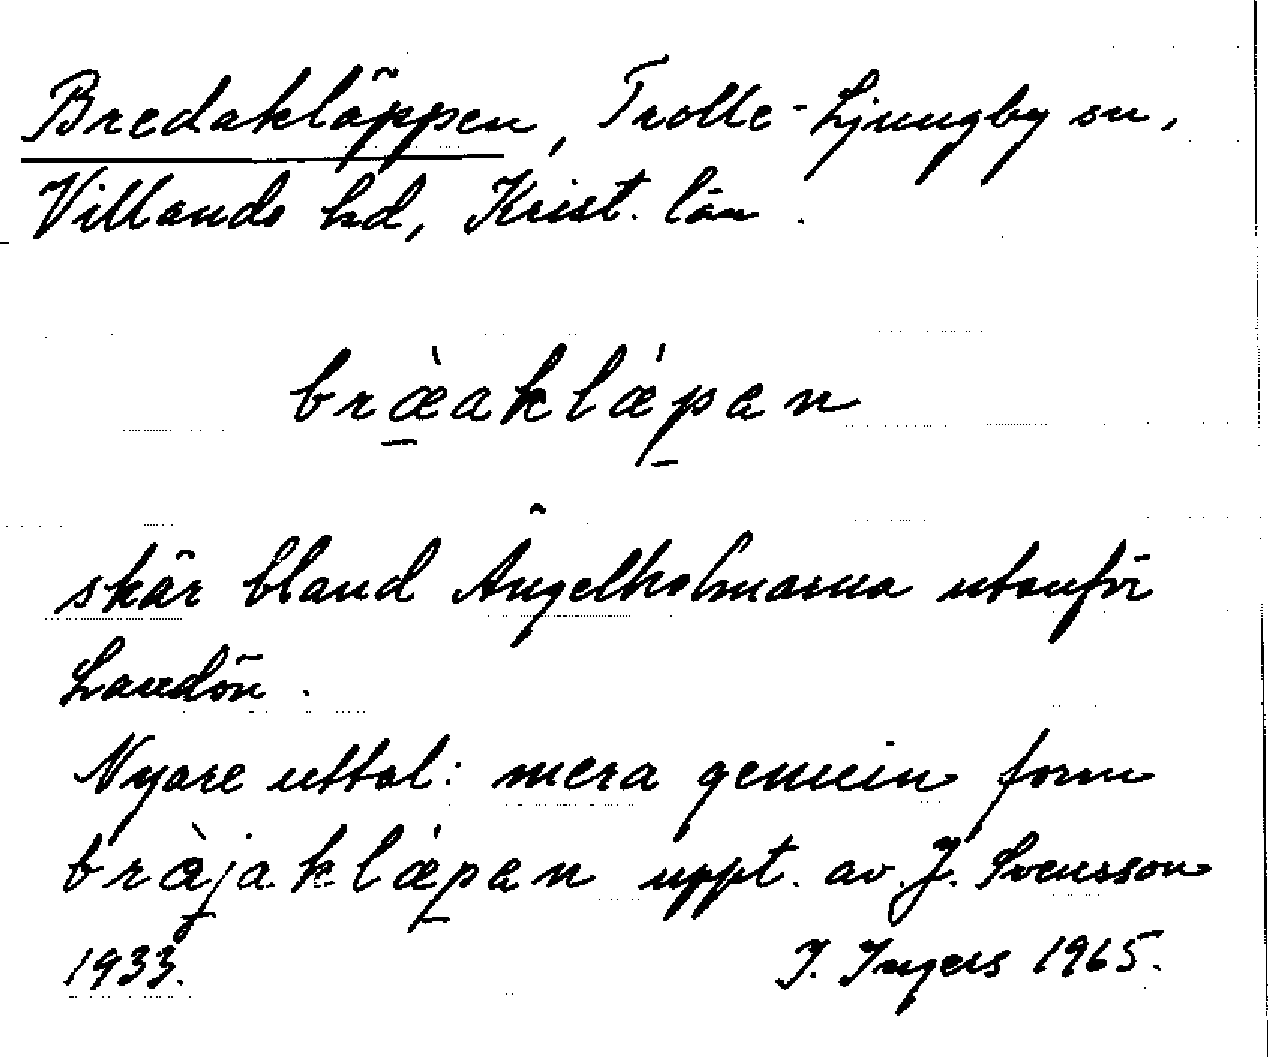 Bredakläppen, Trolle-Ljungby sn,
Villands hd, Krist. län.
bræ̀aklǽpan
skär bland Ängelholmarna utanför
Landön.
Nyare uttal: mera gemein form
bræ̀jaklǽpan uppt. av J. Svensson
1933. I. Ingers 1965.